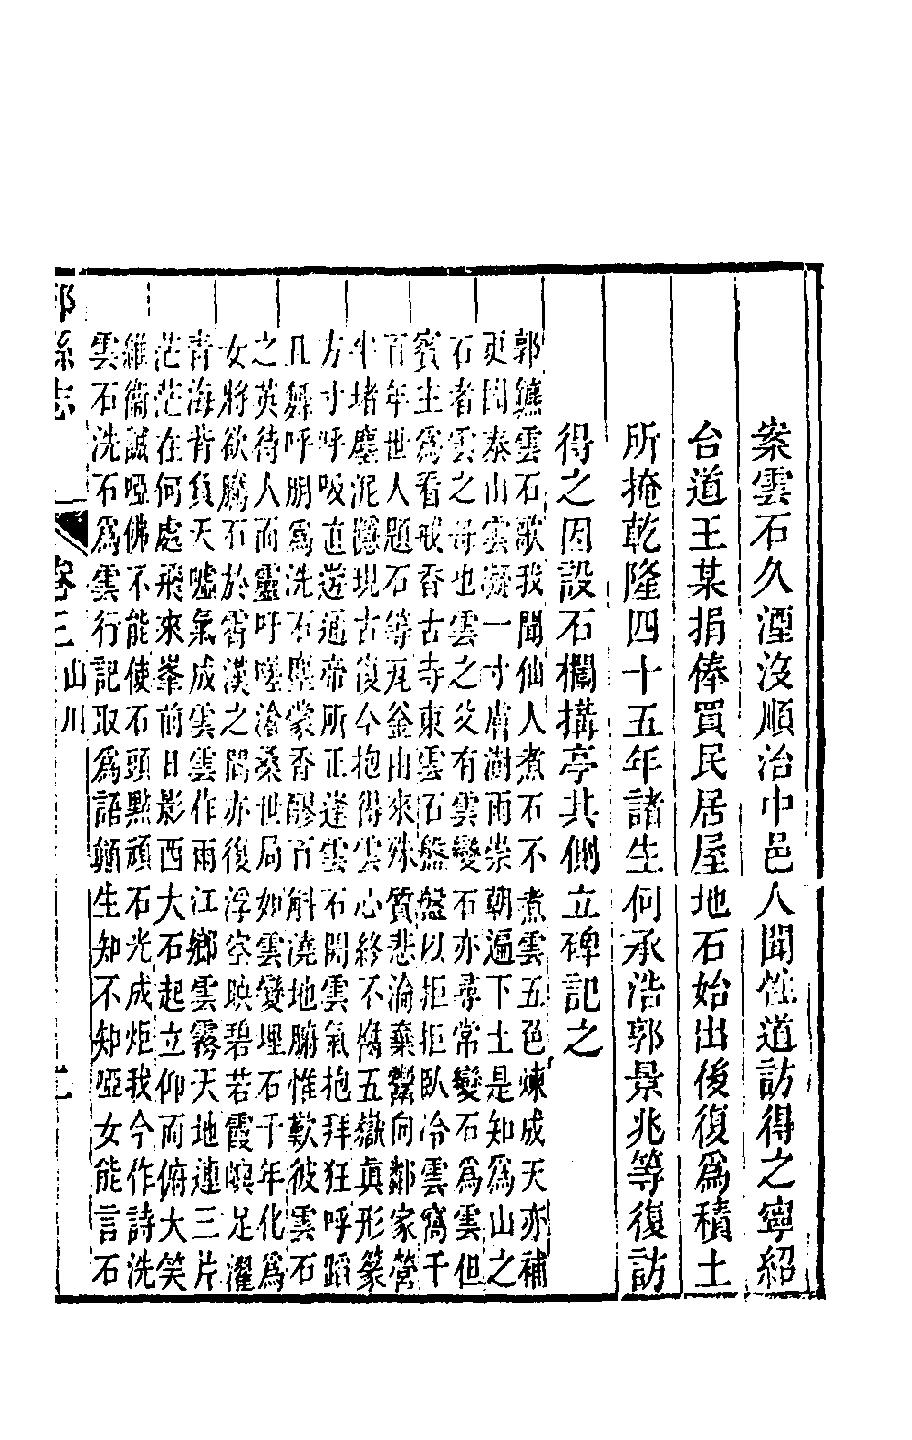 案雲石久湮沒順治中邑人聞性道訪得之寧紹
台道王某捐俸買民居屋地石始出後復爲積土
所掩乾隆四十五年諸生何承浩郭景兆等復訪
得之因設石欄搆亭其側立碑記之
郭雲石歌我聞仙人煮石不煮雲五色煉成天亦補
更聞泰山雲凝一寸膚澍雨崇朝遍下土是知爲山之
石者雲之母也雲之父有雲變石亦尋常變石爲雲但
賓主爲看戒香古寺東雲石盤盤以拒拒臥冷雲窩千
百年世人題石等瓦釜由來殊質悲淪棄鬻向鄰家營
半堵塵泥隱現古復今抱得雲心終不腐五嶽眞形篆
方寸呼吸直逰通帝所正逢雲石開雲氣抱拜狂呼蹈
且舞呼朋爲洗石塵蒙香醪百斛澆地腑惟歎彼雲石
之英待人而靈吁嗟滄桑世局如雲變埋石千年化爲
女將欲騰石於霄漢之間亦復浮空映碧若霞暝足濯
青海背負天噓氣成雲雲作雨江鄉雲霧天地連三片
茫茫在何處飛來峯前日影西大石起立仰而俯大笑
維衞誠啞佛不能使石頭點頑石光成炬我今作詩洗
雲石洗石爲雲行記取爲語顛生知不知啞女能言石
縣志
卷三
山川